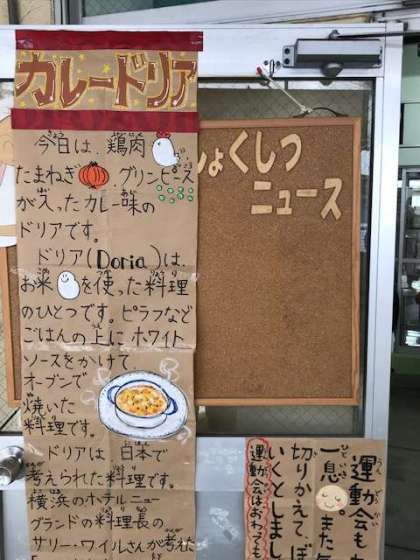 カレードリア
今日は、鶏肉
たまねぎ グリンピース
が入ったカレー味の
ドリアです。
ドリア(Doria)は、
お米 を使った料理
のひとつです。ピラフなど
ごはんの上にホワイト
ソースをかけて
オーブンで
焼いた
料理です。
ドリアは、日本で
考えられた料理です。
横浜のホテルニュー
グランドの料理長の
サリー・ワイルさんが考えた
しょくしつ
ニュース
運動会も
一息 。また
切りかえて、ぼ
いくとしまし
運動会はおわっても